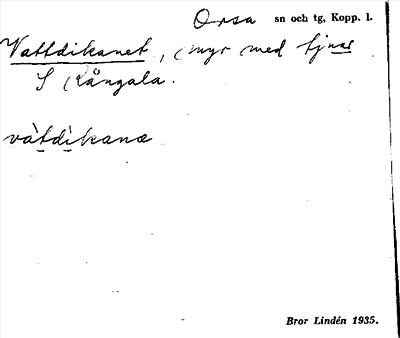 Orsa sn och tg, Kopp. l.
Vattdikanet, myr med tjnar
S Kångala.
våtdikanæ
Bror Lindén 1935.